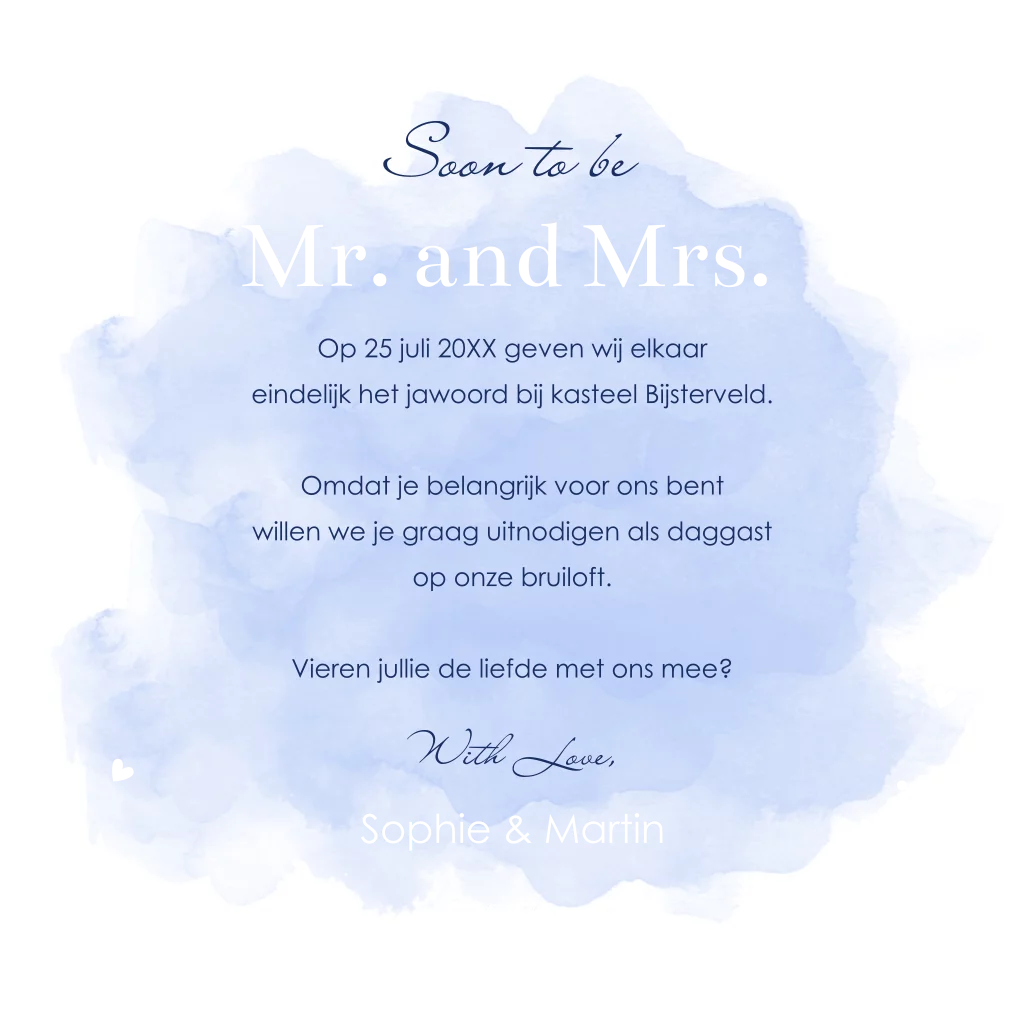 Soon to be
Mr. and Mrs.
Op 25 juli 20XX geven wij elkaar
eindelijk het jawoord bij kasteel Bijsterveld.
Omdat je belangrijk voor ons bent
willen we je graag uitnodigen als daggast
op onze bruiloft.
Vieren jullie de liefde met ons mee?
With Love,
Sophie & Martin